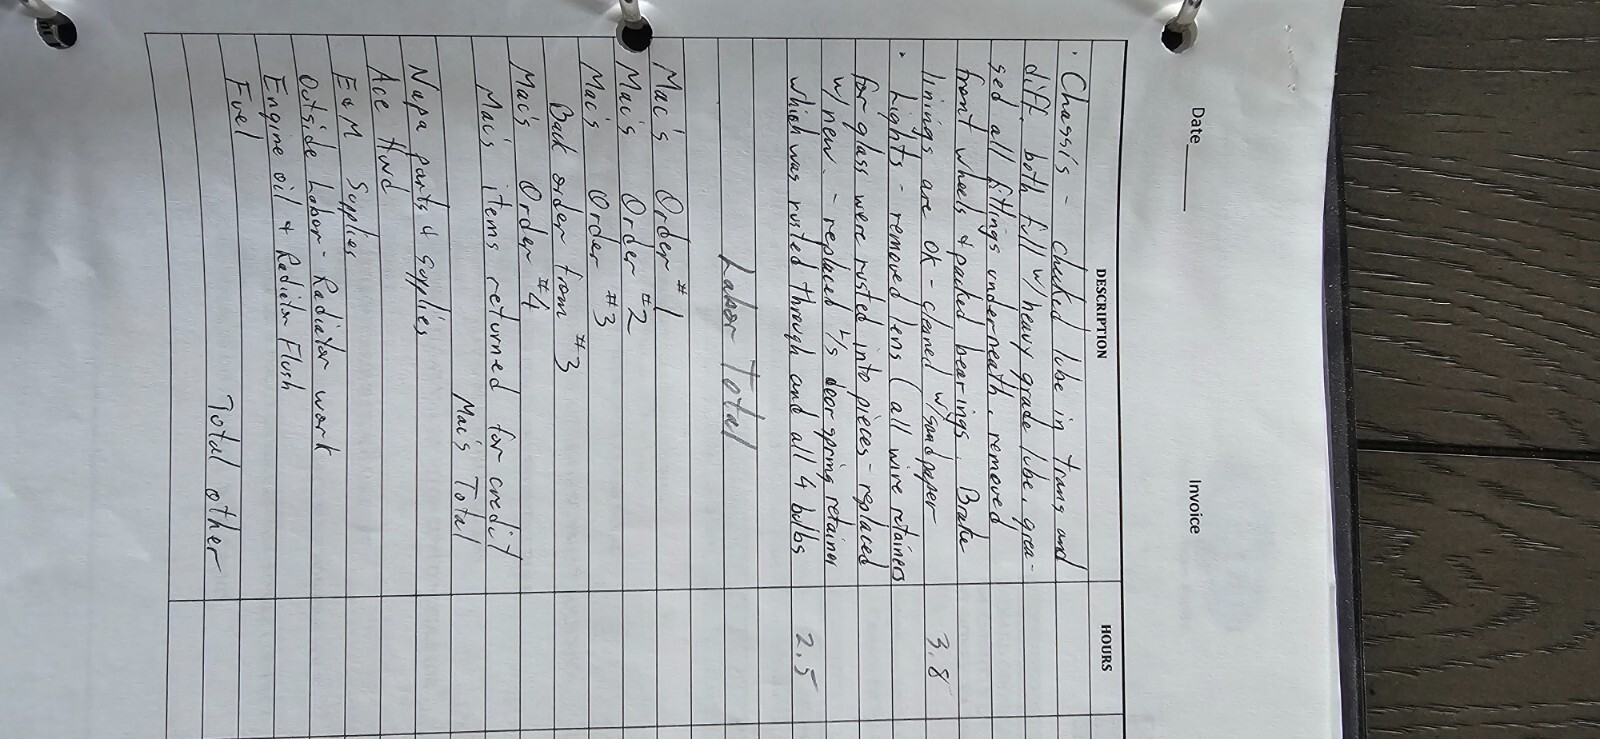 Date____ Invoice
DESCRIPTION HOURS
· Chassis - checked lube in trans and
diff. both full w/ heavy grade lube, grea-
sed all fittings underneath, removed
front wheels & packed bearings. Brake
linings are OK - cleaned w/sandpaper 3.8
· Lights - removed lens (all wire retainers
for glass were rusted into pieces - replaced
w/new. - replaced door spring retainer
which was rusted through and all 4 bulbs 2.5
Labor Total
Mac's Order #1
Mac's Order #2
Mac's Order #3
Back order from #3
Mac's Order #4
Mac's items returned for credit
Mac's Total
Napa parts & supplies
Ace Hwd
E&M Supplies
Outside Labor - Radiator work
Engine oil & Radiator Flush
Fuel
Total other